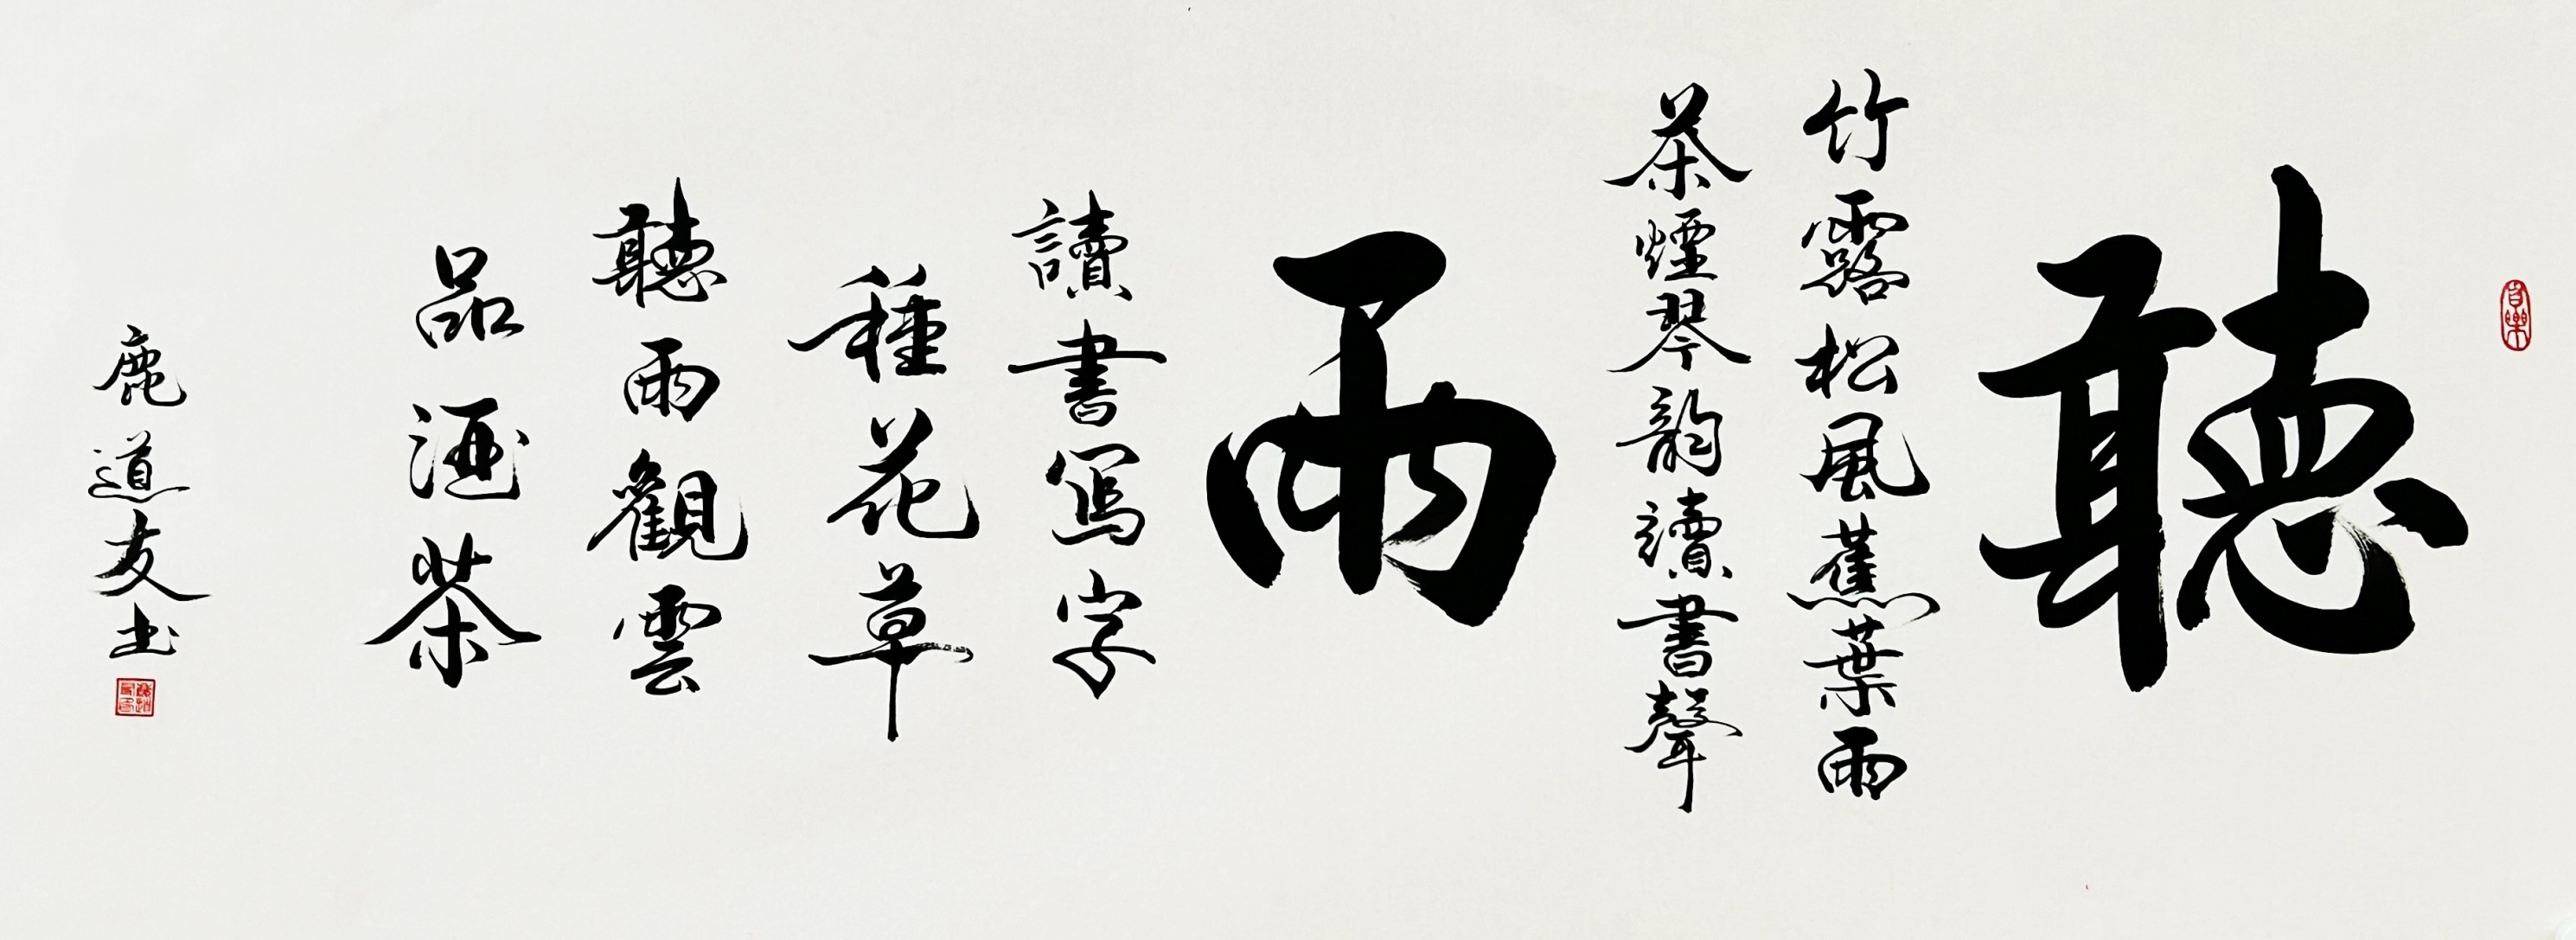 聽
竹露松風蕉葉雨
茶煙琴韵讀書聲
雨
讀書寫字
種花草
聽雨觀雲
品酒茶
鹿道友书